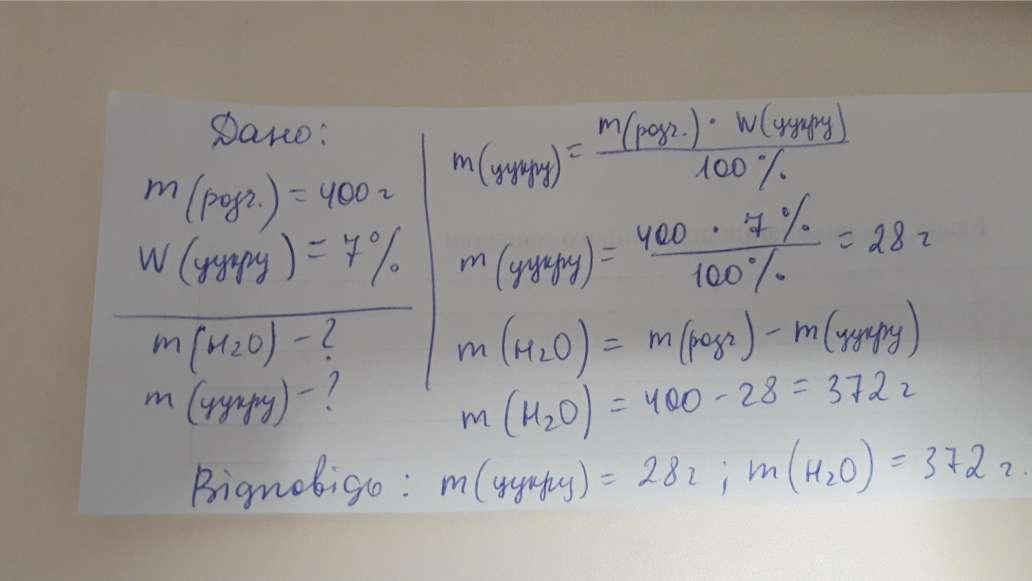 Дано:
m(розч.) = 400 г
W(цукру) = 7%
m(H₂O) - ?
m(цукру) - ?
m(цукру) = m(розч.) · W(цукру) / 100%
m(цукру) = 400 · 7% / 100% = 28 г
m(H₂O) = m(розч) - m(цукру)
m(H₂O) = 400 - 28 = 372 г
Відповідь: m(цукру) = 28г; m(H₂O) = 372 г.